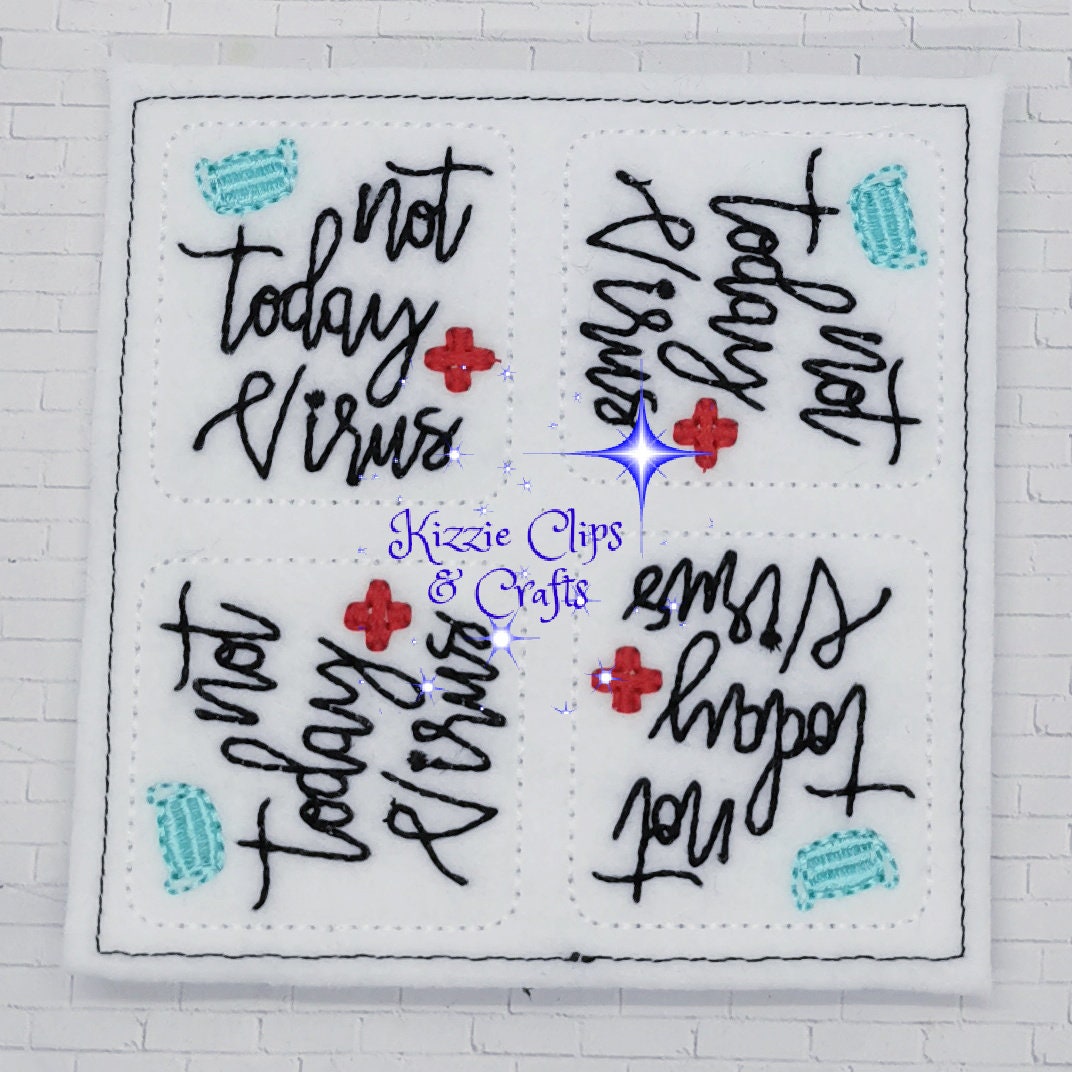 not
today
Virus
not
today
Virus
Kizzie Clips
& Crafts
not
today
Virus
not
today
Virus